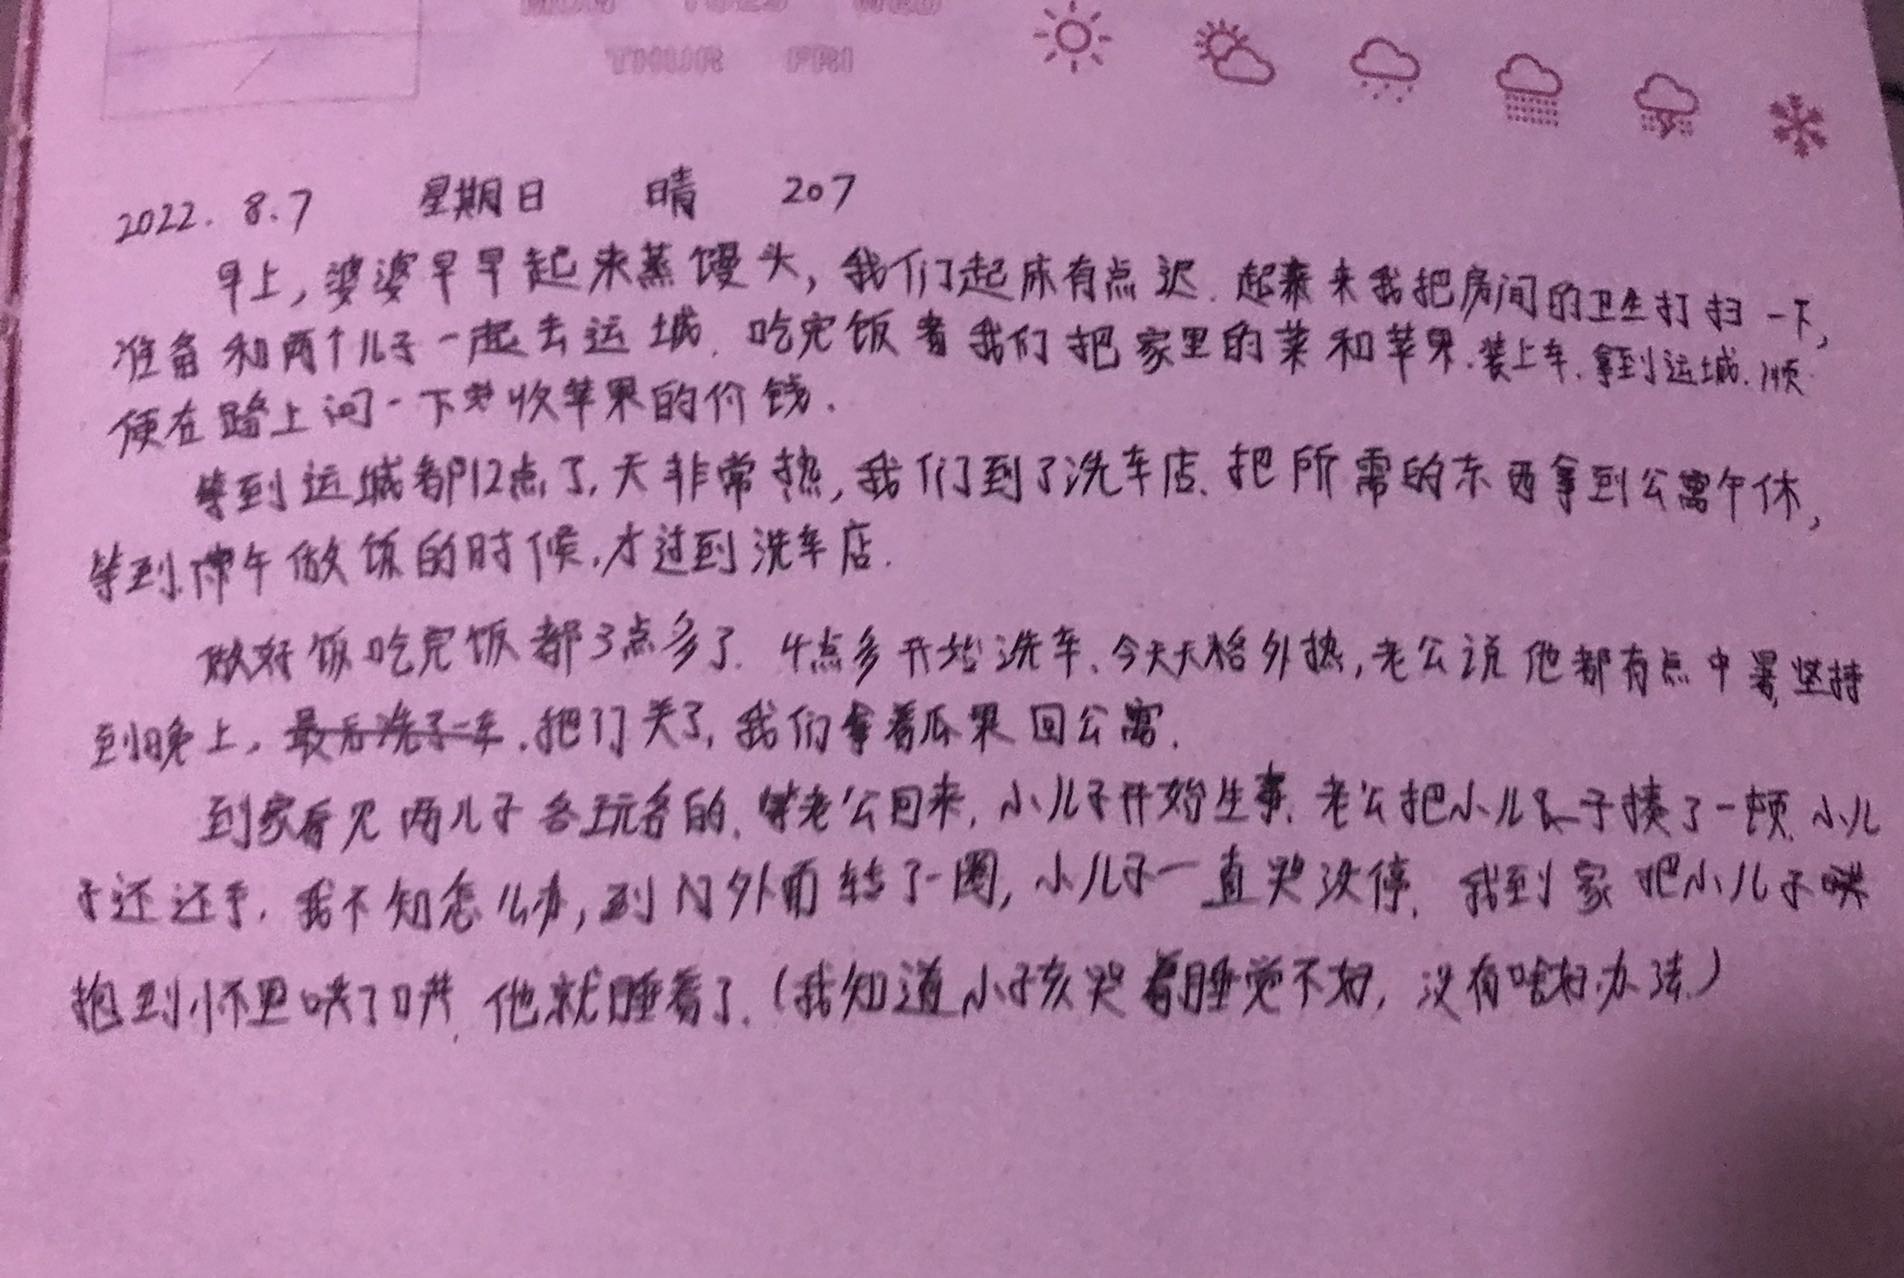 MON TUES WED
THUR FRI
2022.8.7 星期日 晴 207
早上,婆婆早早起来蒸馒头,我们起床有点迟.起来我把房间的卫生打扫一下,
准备和两个儿子一起去运城.吃完饭着我们把家里的菜和苹果.装上车.拿到运城.顺
便在路上问一下收苹果的价钱.
等到运城都12点了,天非常热,我们到了洗车店.把所需的东西拿到公寓午休,
等到午做饭的时候,才过到洗车店.
做好饭吃完饭都3点多了.4点多开始洗车、今天天格外热,老公说他都有点中暑,坚持
到晚上,最后洗了一车.把门关了,我们拿着瓜果回公寓.
到家看见两儿子各玩各的.等老公回来,小儿子开始生事.老公把小儿子揍了一顿.小儿
子还还手.我不知怎么办,到门外面转了一圈,小儿子一直哭没停.我到家把小儿子哄
抱到怀里哄了哄.他就睡着了.(我知道小孩哭着睡觉不好,没有啥好办法.)